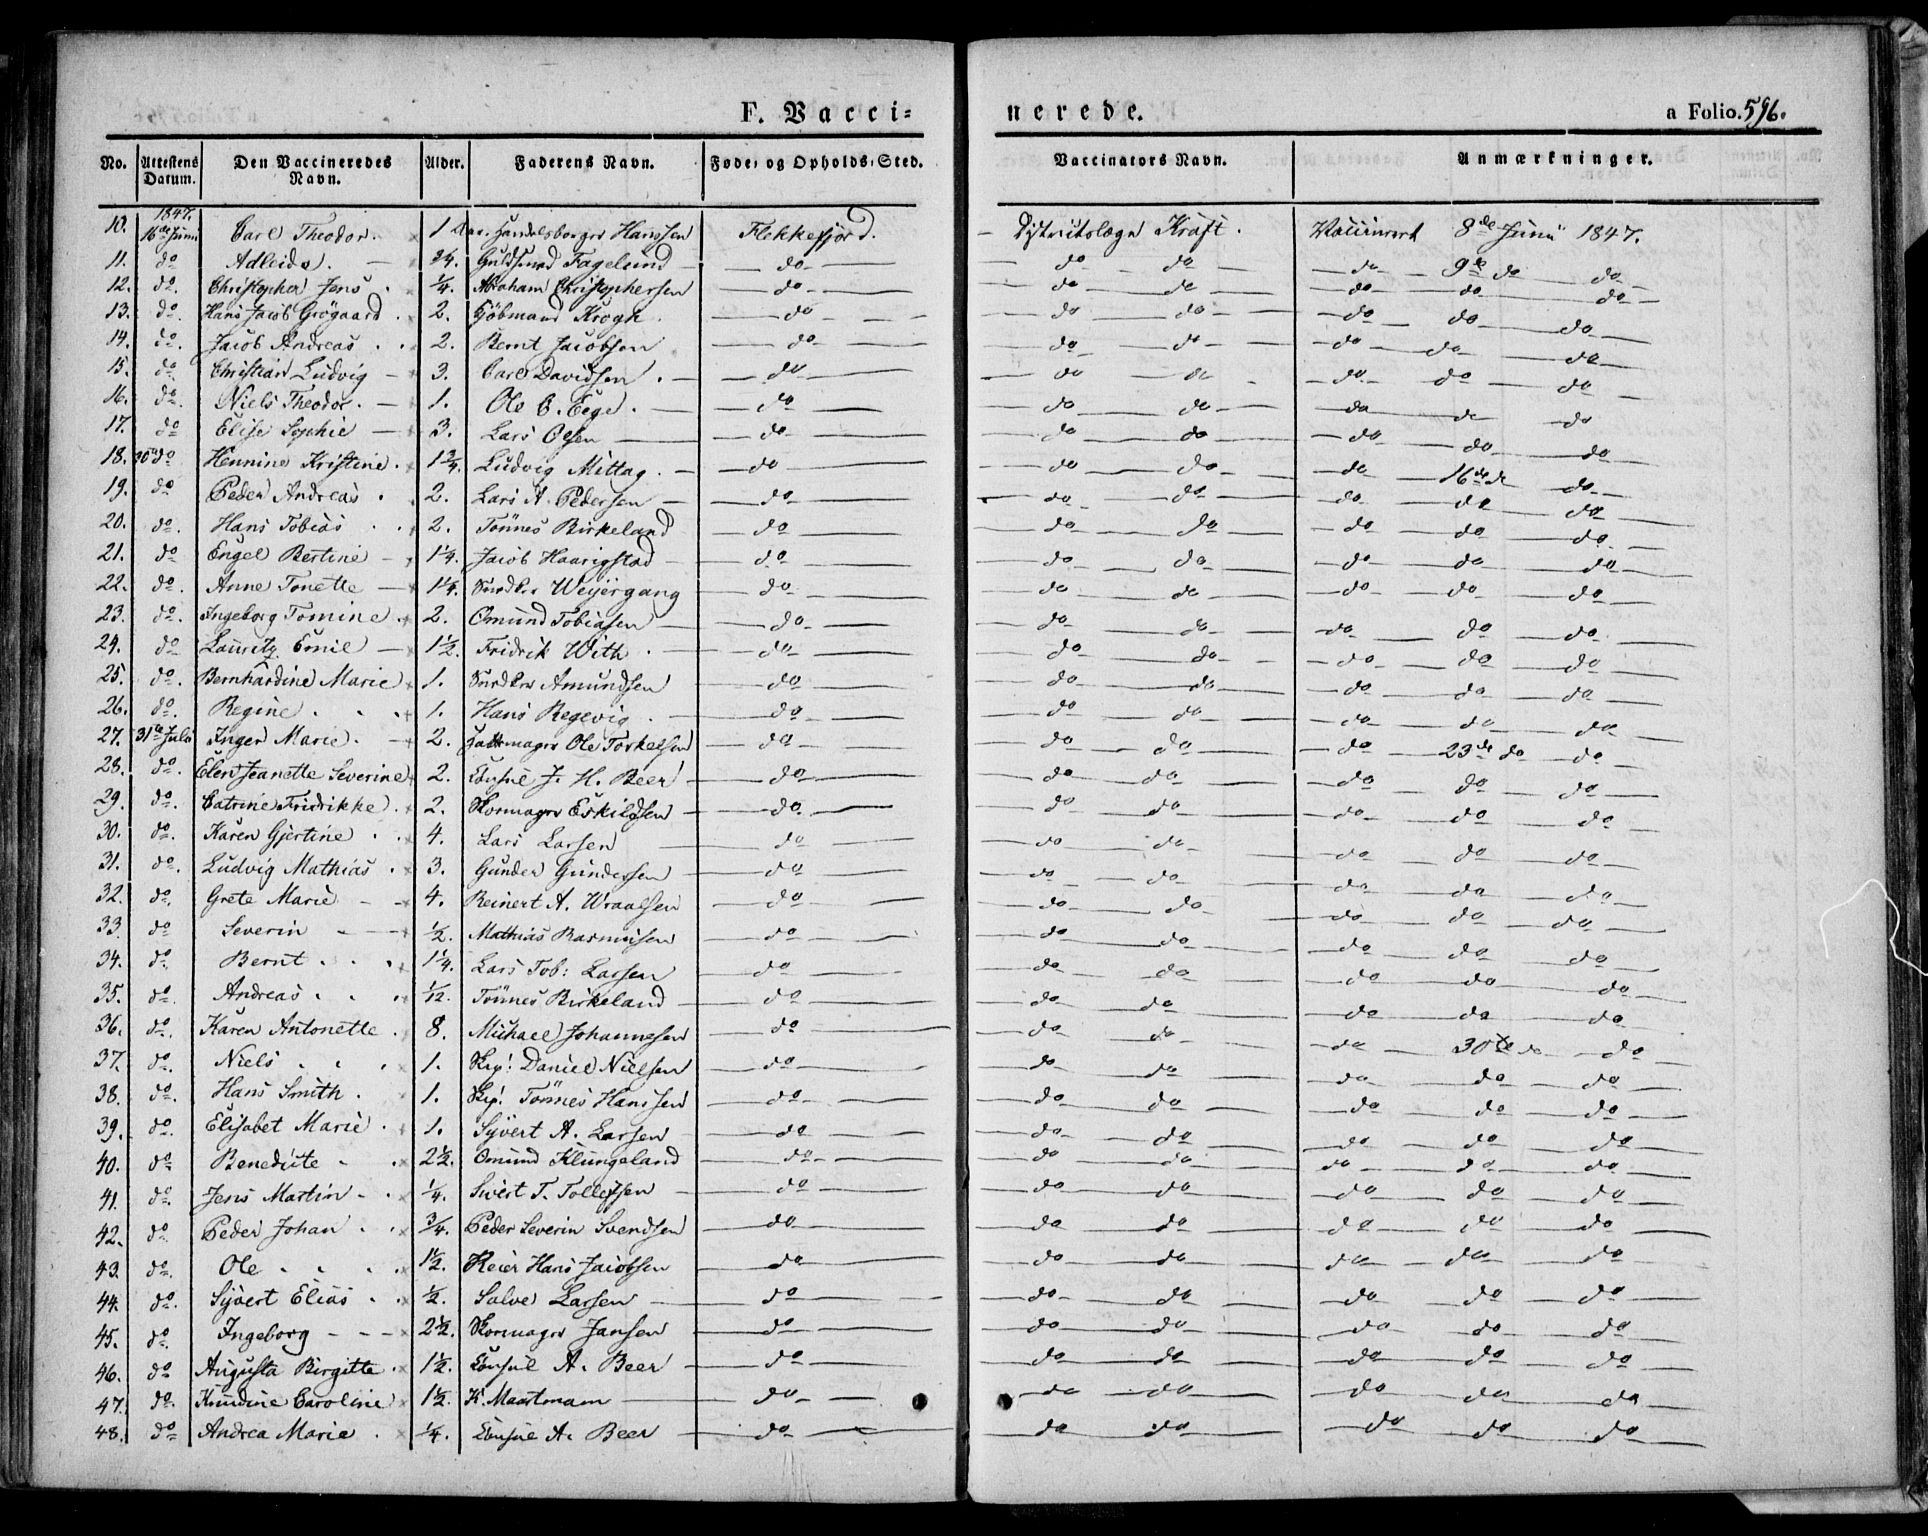 F. Vacci= nerede. a Folio. 596.
No. Attestens Datum. Den Vaccineredes Navn. Alder. Faderens Navn. Føde= og Opholds=Sted. Vaccinators Navn. Anmærkninger.
1847.
10. 16de Juni Carl Theodor. 1 Handelsborger Hanssen Flekkefjord. Distriktslæge Kraft. Vaccineret 8de Junii 1847.
11. do Adleide. 3/4. Guldsmed Fagelund do do do do 9de do do
12. do. Christopher Jens 1/4. Abraham Christophersen do do do do do do
13. do. Hans Jacob Grögaard 2. Kjöbmand Krogh do do do do do do
14. do. Jacob Andreas 2. Bernt Jacobsen do do do do do do
15. do. Christian Ludvig 3. Carl Davidsen do do do do do do
16. do. Niels Theodor. 1. Ole C. Eege. do do do do do do
17. do Elise Sophie 3. Lars Olsen do do do do do do
18. 30te do Hennine Kristine 1 3/4. Ludvig Mittag. do do do do 16de do do
19. do Peder Andreas 2. Lars A. Pedersen do do do do do do
20. do. Hans Tobias 2. Tönnes Birkeland do do do do do do
21. do Engel Bertine 1 1/4. Jacob Haarigstad do do do do do do
22. do. Anne Tonette 1 1/4. Snedker Weyergang do do do do do do
23. do. Ingeborg Tomine 2. Omund Tobiasen do do do do do do
24. do Lauritz Emil 1 1/2. Fridrik With do do do do do do
25. do. Bernhardine Marie 1. Snedker Amundsen do do do do do do
26. do. Regine 1. Hans Regevig do do do do do do
27. 31te Juli Inger Marie. 2. Hattemager Ole Torkelsen do do do do 23de do do
28. do. Elen Jeanette Severine 2. Consul J. H. Beer do do do do do do
29. do. Catrine Fridrikke 2. Skomager Eskildsen do do do do do do
30. do. Karen Gjertine 4. Lars Larsen do do do do do do
31. do. Ludvig Mathias 3. Gunder Gundersen do do do do do do
32. do. Grete Marie 4. Reinert A. Wraalsen do do do do do do
33. do Severin 1/2. Mathias Rasmussen do do do do do do
34. do. Bernt 1 1/4. Lars Tob: Larsen do do do do do do
35. do. Andreas 1/12. Tönnes Birkeland do do do do do do
36. do. Karen Antonette 8. Michael Johannesen do do do do 30te do do
37. do. Niels 1. Skp: Daniel Nielsen do do do do do do
38. do. Hans Smith. 1. Skp: Tönnes Hanssen do do do do do do
39. do. Elisabet Marie 1. Syvert A. Larsen do do do do do do
40. do. Benedicte 2 1/2. Omund Klungeland do do do do do do
41. do. Jens Martin 1/4. Sivert T. Tollefsen do do do do do do
42. do. Peder Johan 3/4. Peder Severin Svendsen do do do do do do
43. do. Ole 1 1/2. Reier Hans Jacobsen do do do do do do
44. do. Syvert Elias 1/2. Salve Larsen do do do do do do
45. do. Ingeborg 2 1/2. Skomager Jansen do do do do do do
46. do Augusta Birgitte 1 1/2. Consul A. Beer do do do do do do
47. do. Knudine Caroline 1 1/2. K. Maartmann do do do do do do
48. do Andrea Marie 1/4. Consul A. Beer do do do do do do